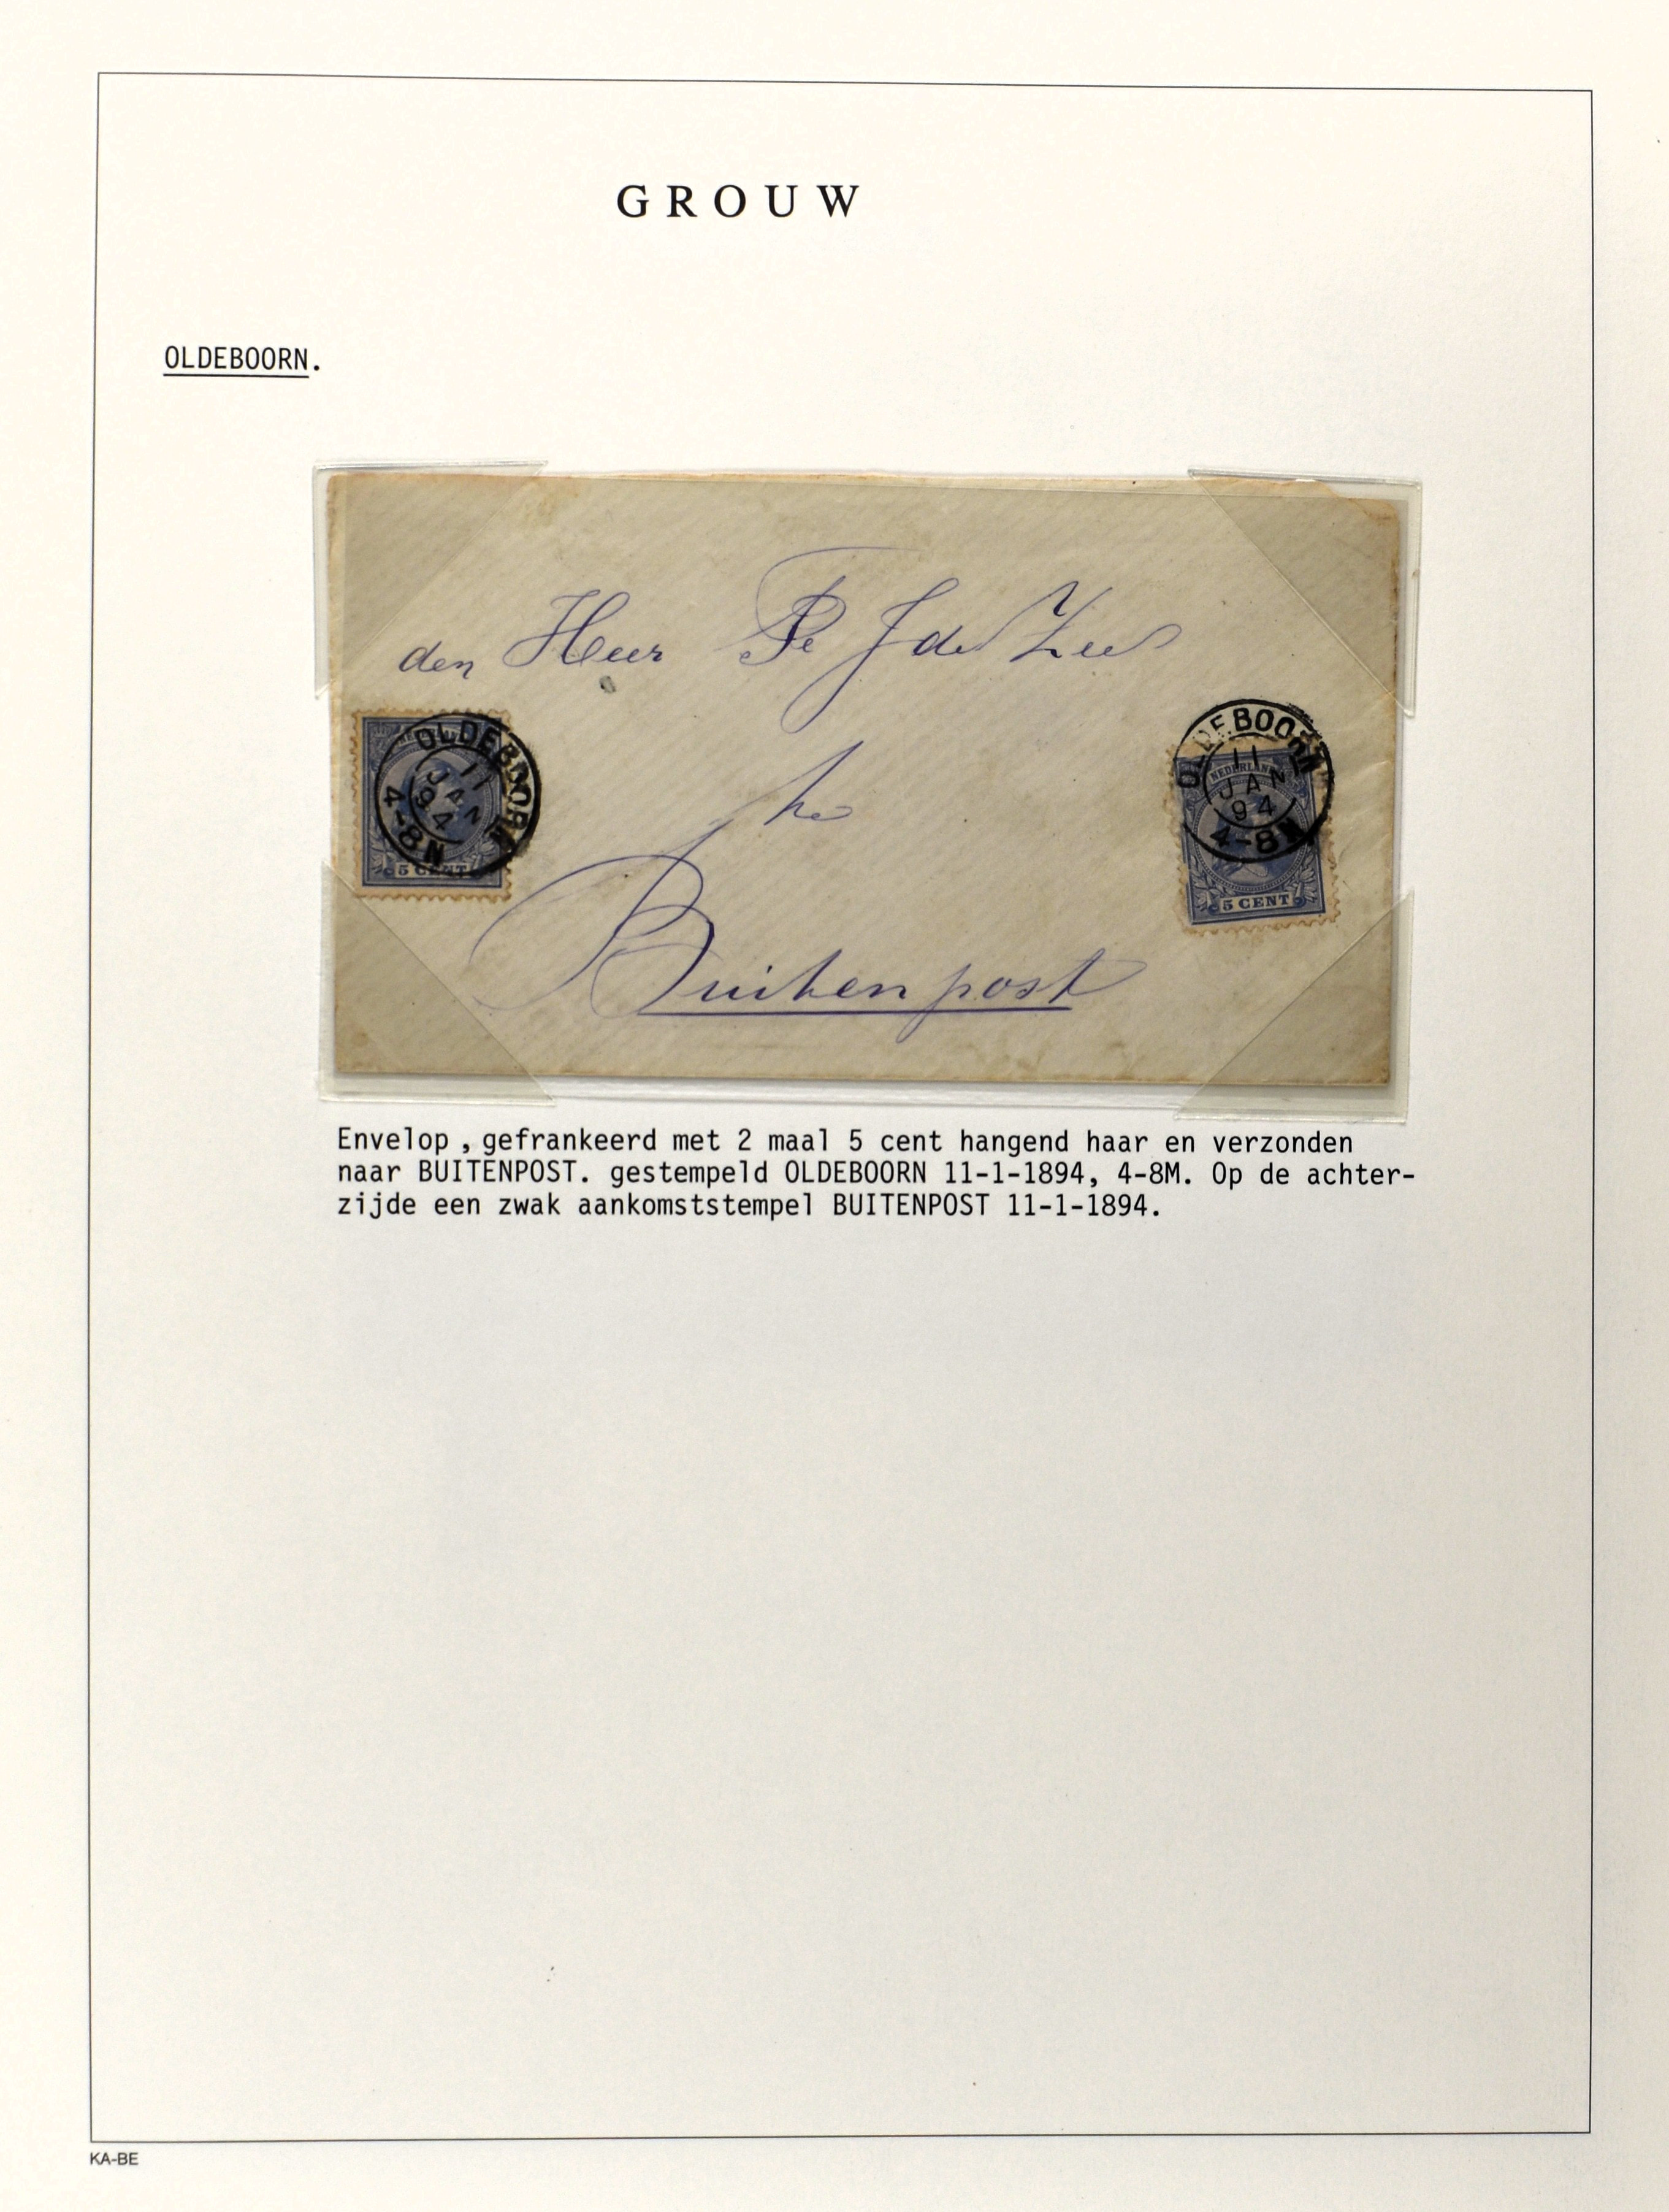 GROUW
OLDEBOORN.
den Heer Pe J de Zee
te
Buitenpost
OLDEBOORN
11
JAN
94
4-8N
5 CENT
OLDEBOORN
NEDERLAND
11
JAN
94
4-8N
5 CENT
Envelop , gefrankeerd met 2 maal 5 cent hangend haar en verzonden
naar BUITENPOST. gestempeld OLDEBOORN 11-1-1894, 4-8M. Op de achter-
zijde een zwak aankomststempel BUITENPOST 11-1-1894.
KA-BE